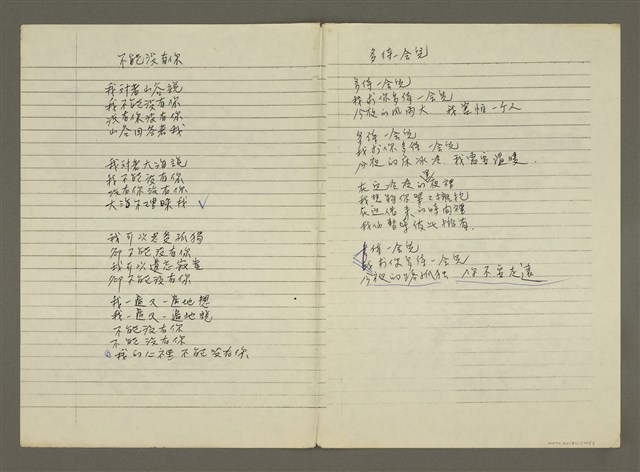 不能沒有你
我对着山谷說
我不能沒有你
沒有你沒有你
山谷回答着我
我对着大海說
我不能沒有你
沒有你沒有你
大海不理睬我
我可以忍受孤独
卻不能沒有你
我可以遺忘寂寞
卻不能沒有你
我一遍又一遍地想
我一遍又一遍地說
不能沒有你
不能沒有你
我的心裡不能沒有你
多待一会兒
多待一会兒
我求你多待一会兒
今夜的风雨大 我害怕一个人
多待一会兒
我求你多待一会兒
今夜的床冰冷 我需要溫暖
在这凄凄的夜裡
我想和你
在这借來的時間裡
我们暫時彼此擁有
多待一会兒
我求你多待一会兒
今夜的路孤独 你不要走遠